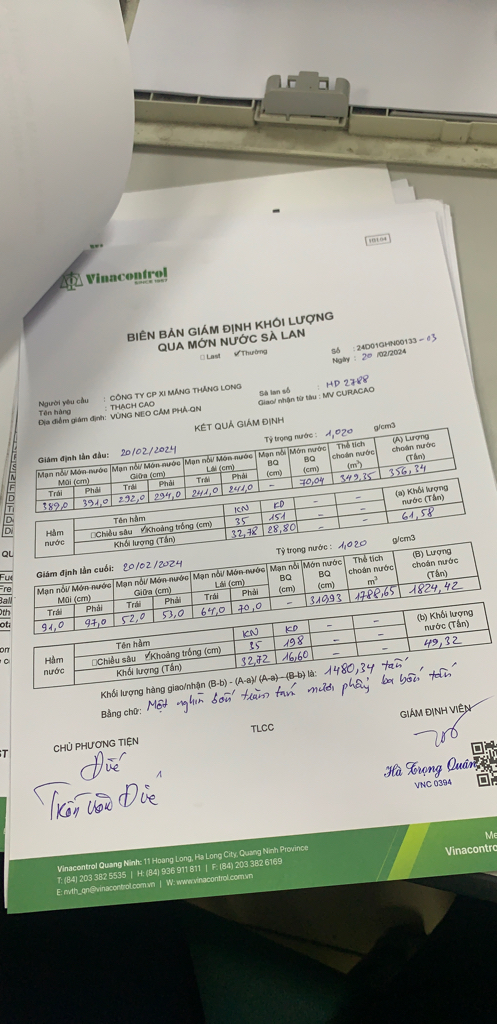 TĐ1.04
Vinacontrol
SINCE 1957
BIÊN BẢN GIÁM ĐỊNH KHỐI LƯỢNG
QUA MỚN NƯỚC SÀ LAN
☐Last ☑Thường
Số : 24D01GHN00133 - 03
Ngày : 20 /02/2024
Người yêu cầu : CÔNG TY CP XI MĂNG THĂNG LONG
Tên hàng : THẠCH CAO
Địa điểm giám định: VÙNG NEO CẨM PHẢ-QN
Sà lan số : HD 2788
Giao/ nhận từ tàu : MV CURACAO
KẾT QUẢ GIÁM ĐỊNH
Giám định lần đầu: 20/02/2024 Tỷ trọng nước : 1,020 g/cm3
Mạn nổi/ Mớn nước Mũi (cm) Mạn nổi/ Mớn nước Giữa (cm) Mạn nổi/ Mớn nước Lái (cm) Mạn nổi BQ (cm) Mớn nước BQ (cm) Thể tích choán nước (m³) (A) Lượng choán nước (Tấn)
Trái Phải Trái Phải Trái Phải
389,0 391,0 292,0 294,0 241,0 241,0 - 70,04 349,35 356,34
Hầm nước Tên hầm KN KD - - (a) Khối lượng nước (Tấn)
☐Chiều sâu ☑Khoảng trống (cm) 35 151 - -
Khối lượng (Tấn) 32,78 28,80 - - 61,58
Giám định lần cuối: 20/02/2024 Tỷ trọng nước : 1,020 g/cm3
Mạn nổi/ Mớn nước Mũi (cm) Mạn nổi/ Mớn nước Giữa (cm) Mạn nổi/ Mớn nước Lái (cm) Mạn nổi BQ (cm) Mớn nước BQ (cm) Thể tích choán nước m³ (B) Lượng choán nước (Tấn)
Trái Phải Trái Phải Trái Phải
91,0 97,0 52,0 53,0 64,0 70,0 - 319,93 1788,65 1824,42
Hầm nước Tên hầm KN KD - - (b) Khối lượng nước (Tấn)
☐Chiều sâu ☑Khoảng trống (cm) 35 198 - -
Khối lượng (Tấn) 32,72 16,60 - - 49,32
Khối lượng hàng giao/nhận (B-b) - (A-a)/ (A-a) - (B-b) là: 1480,34 tấn
Bằng chữ: Một nghìn bốn trăm tám mươi phẩy ba bốn tấn
CHỦ PHƯƠNG TIỆN TLCC GIÁM ĐỊNH VIÊN
Duế
Trần Văn Duế
Hà Trọng Quân
VNC 0394
Vinacontrol Quang Ninh: 11 Hoang Long, Ha Long City, Quang Ninh Province
T: (84) 203 382 5535 | H: (84) 936 911 811 | F: (84) 203 382 6169
E: nvth_qn@vinacontrol.com.vn | W: www.vinacontrol.com.vn
Vinacontro